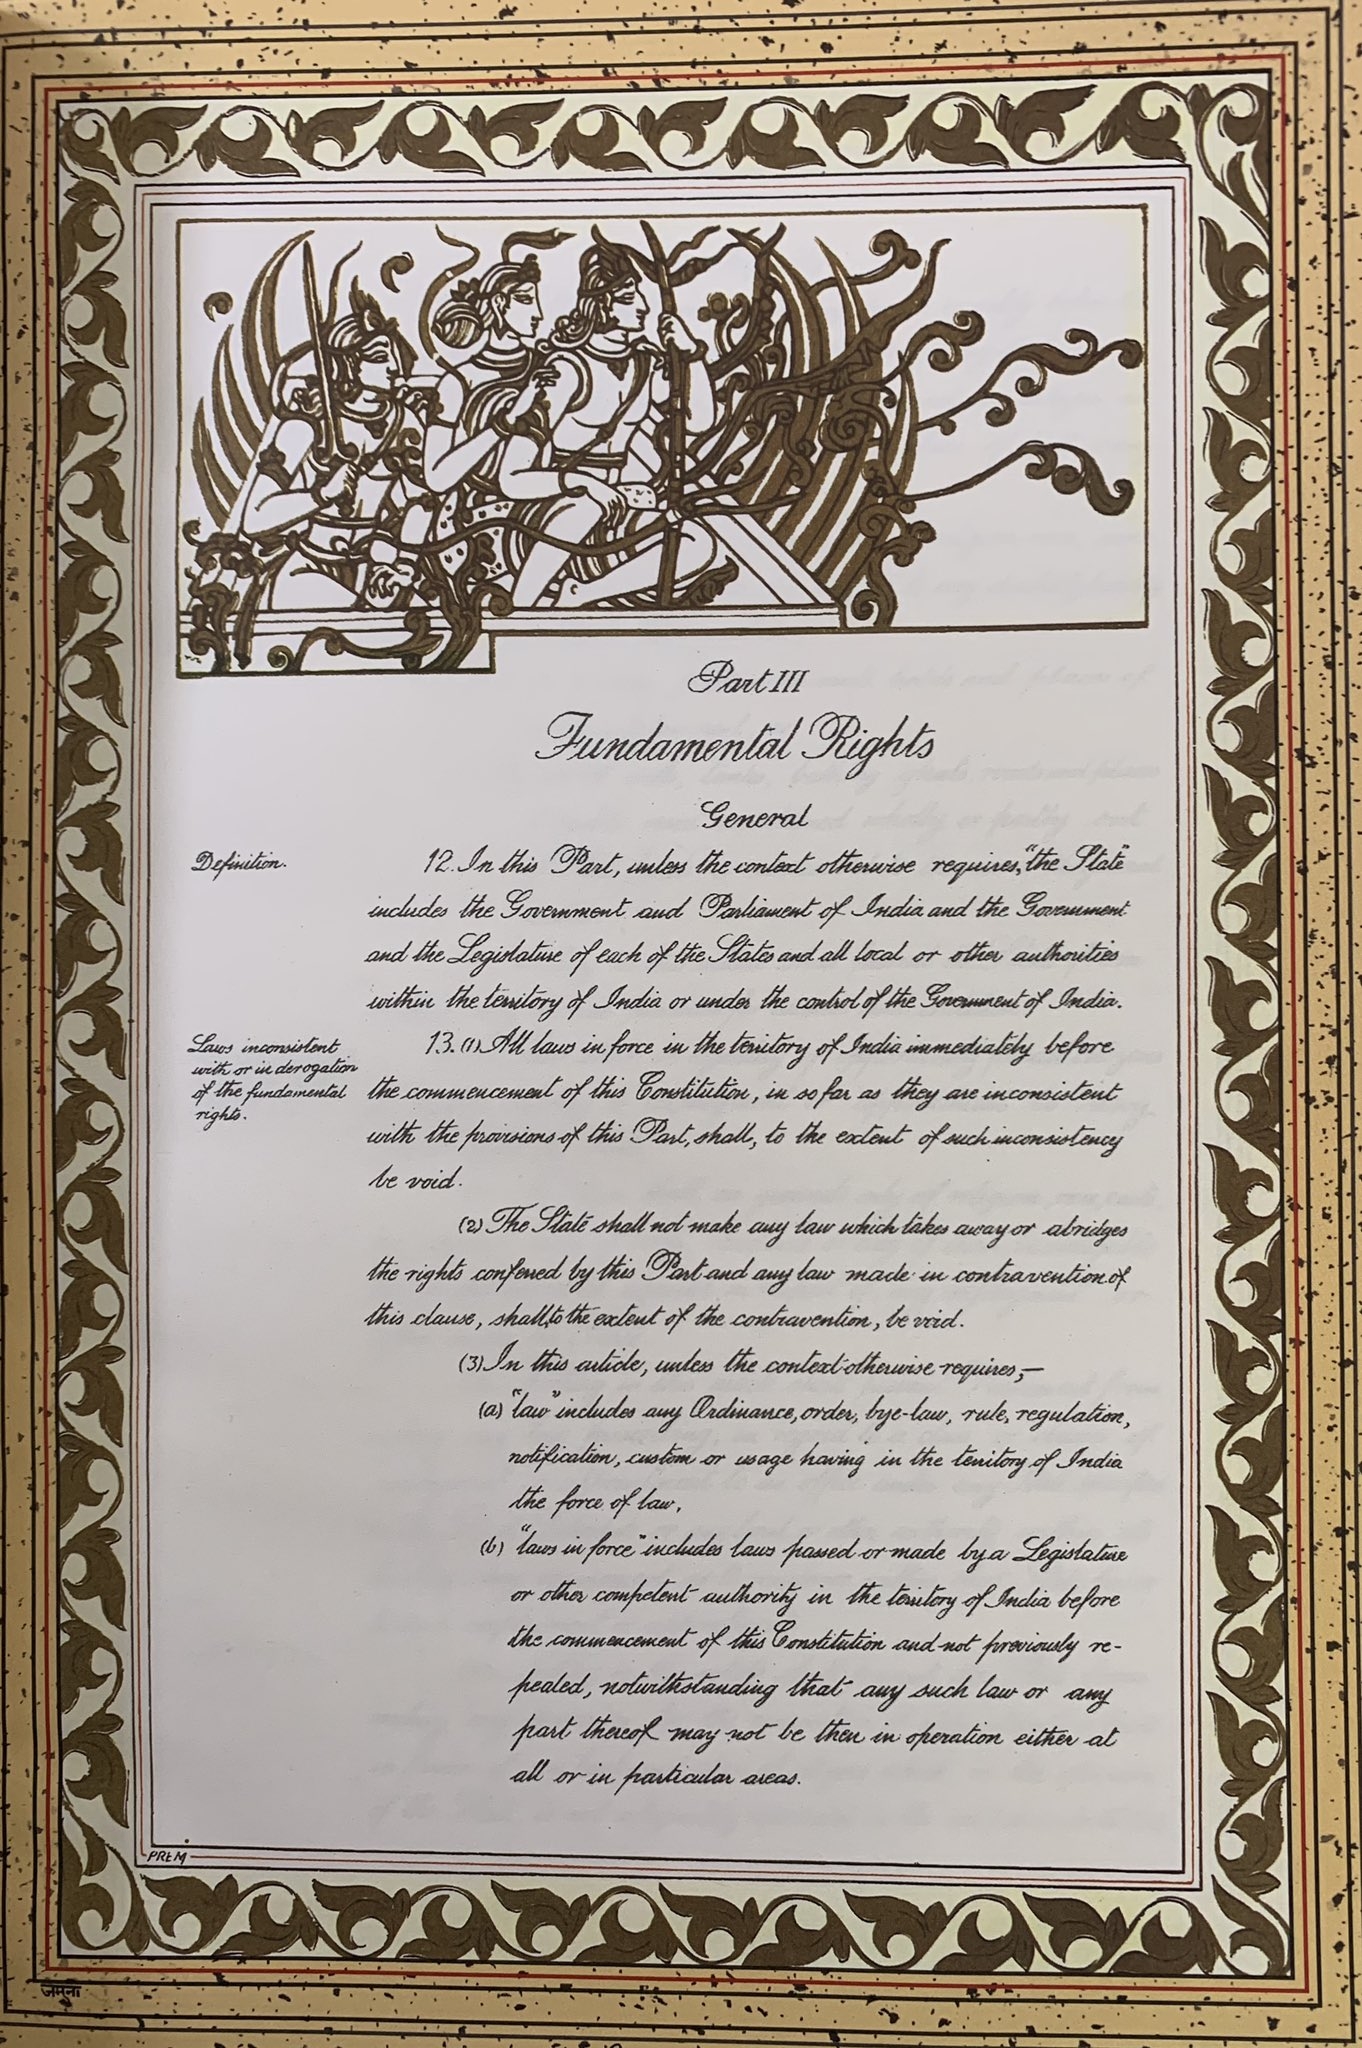 Part III
Fundamental Rights
General
Definition.
12. In this Part, unless the context otherwise requires, "the State"
includes the Government and Parliament of India and the Government
and the Legislature of each of the States and all local or other authorities
within the territory of India or under the control of the Government of India.
Laws inconsistent
with or in derogation
of the fundamental
rights.
13. (1) All laws in force in the territory of India immediately before
the commencement of this Constitution, in so far as they are inconsistent
with the provisions of this Part, shall, to the extent of such inconsistency
be void.
(2) The State shall not make any law which takes away or abridges
the rights conferred by this Part and any law made in contravention of
this clause, shall, to the extent of the contravention, be void.
(3) In this article, unless the context otherwise requires,—
(a) "law" includes any Ordinance, order, bye-law, rule, regulation,
notification, custom or usage having in the territory of India
the force of law,
(b) "laws in force" includes laws passed or made by a Legislature
or other competent authority in the territory of India before
the commencement of this Constitution and not previously re-
pealed, notwithstanding that any such law or any
part thereof may not be then in operation either at
all or in particular areas.
PREM
जमुना